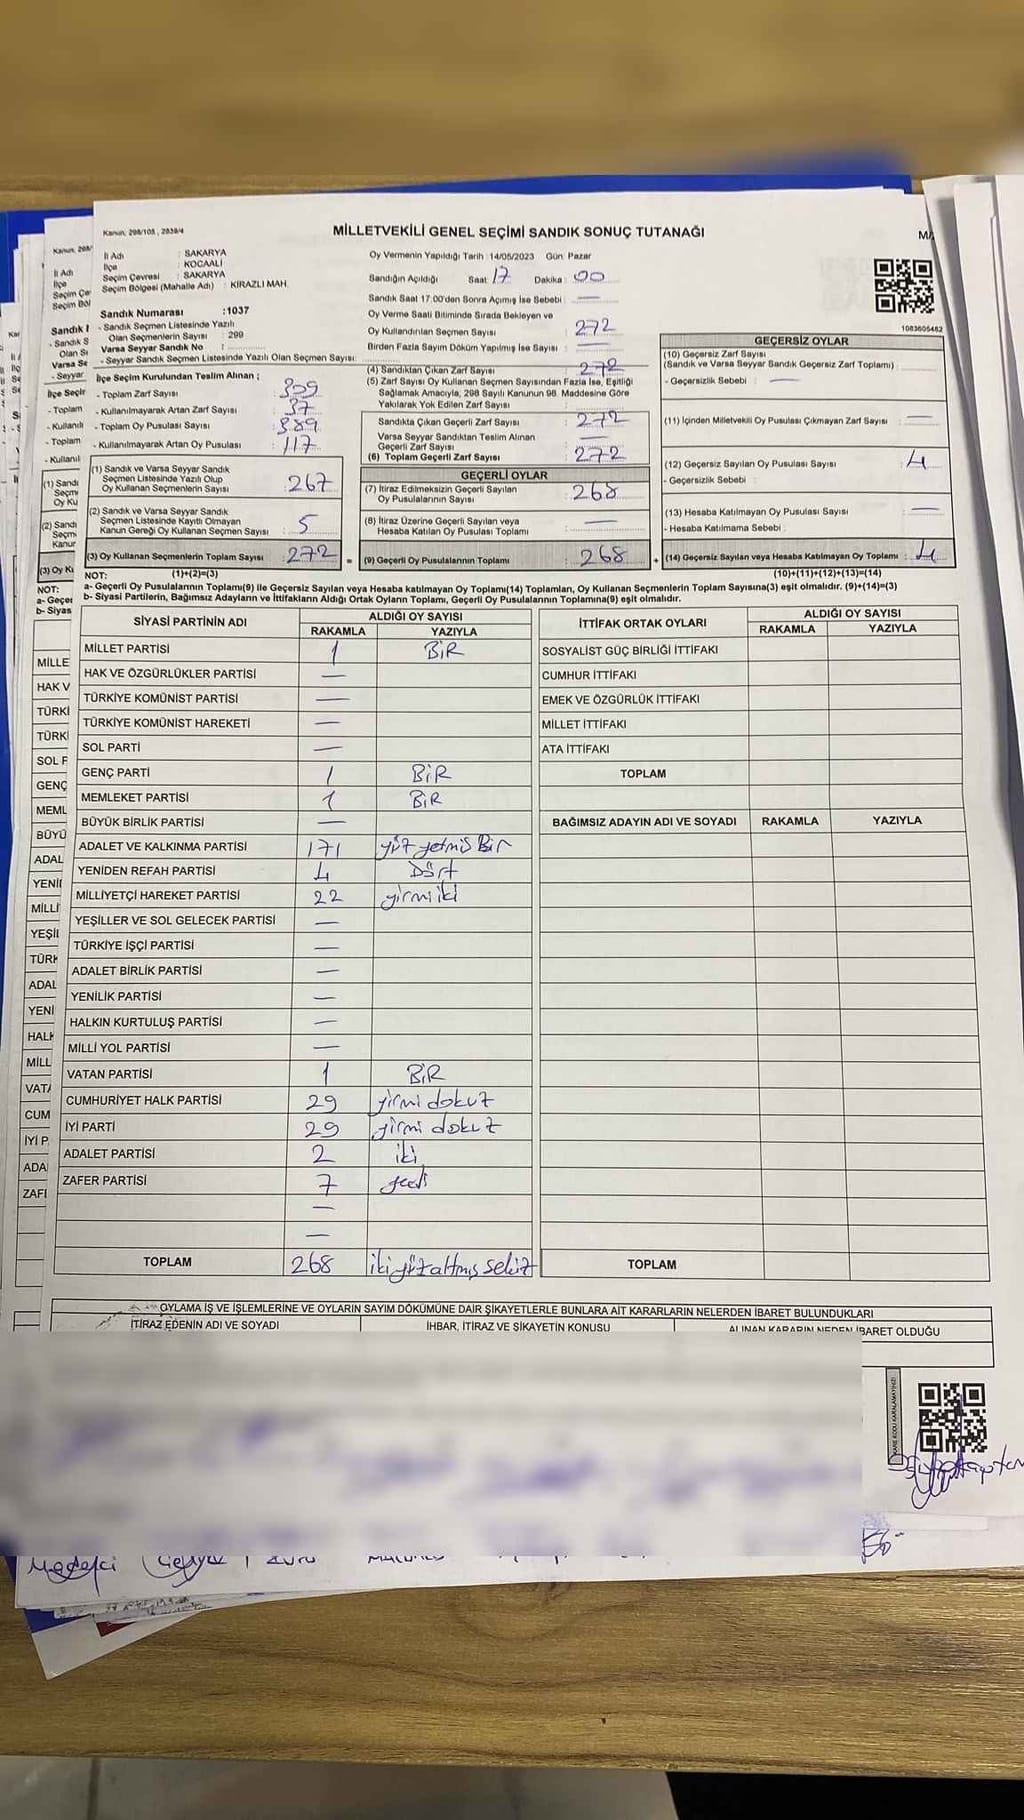 Kanun, 298/105 , 2839/4
MİLLETVEKİLİ GENEL SEÇİMİ SANDIK SONUÇ TUTANAĞI
İl Adı : SAKARYA
İlçe : KOCAALİ
Seçim Çevresi : SAKARYA
Seçim Bölgesi (Mahalle Adı) : KİRAZLI MAH.
Sandık Numarası :1037
- Sandık Seçmen Listesinde Yazılı
Olan Seçmenlerin Sayısı : 299
Varsa Seyyar Sandık No :
- Seyyar Sandık Seçmen Listesinde Yazılı Olan Seçmen Sayısı:
İlçe Seçim Kurulundan Teslim Alınan ;
- Toplam Zarf Sayısı : 309
- Kullanılmayarak Artan Zarf Sayısı : 37
- Toplam Oy Pusulası Sayısı : 389
- Kullanılmayarak Artan Oy Pusulası : 117
(1) Sandık ve Varsa Seyyar Sandık
Seçmen Listesinde Yazılı Olup
Oy Kullanan Seçmenlerin Sayısı : 267
(2) Sandık ve Varsa Seyyar Sandık
Seçmen Listesinde Kayıtlı Olmayan
Kanun Gereği Oy Kullanan Seçmen Sayısı : 5
(3) Oy Kullanan Seçmenlerin Toplam Sayısı : 272 =
(1)+(2)=(3)
Oy Vermenin Yapıldığı Tarih :14/05/2023 Gün Pazar
Sandığın Açıldığı Saat: 17 Dakika : 00
Sandık Saat 17:00'den Sonra Açımış İse Sebebi : —
Oy Verme Saati Bitiminde Sırada Bekleyen ve
Oy Kullandırılan Seçmen Sayısı : 272
Birden Fazla Sayım Döküm Yapılmış İse Sayısı : —
(4) Sandıktan Çıkan Zarf Sayısı : 272
(5) Zarf Sayısı Oy Kullanan Seçmen Sayısından Fazla İse, Eşitliği
Sağlamak Amacıyla, 298 Sayılı Kanunun 98. Maddesine Göre
Yakılarak Yok Edilen Zarf Sayısı :
Sandıkta Çıkan Geçerli Zarf Sayısı : 272
Varsa Seyyar Sandıktan Teslim Alınan
Geçerli Zarf Sayısı : —
(6) Toplam Geçerli Zarf Sayısı : 272
GEÇERLİ OYLAR
(7) İtiraz Edilmeksizin Geçerli Sayılan
Oy Pusulalarının Sayısı : 268
(8) İtiraz Üzerine Geçerli Sayılan veya
Hesaba Katılan Oy Pusulası Toplamı : —
(9) Geçerli Oy Pusulalarının Toplamı : 268 +
1083605482
GEÇERSİZ OYLAR
(10) Geçersiz Zarf Sayısı
(Sandık ve Varsa Seyyar Sandık Geçersiz Zarf Toplamı) :
- Geçersizlik Sebebi : —
(11) İçinden Milletvekili Oy Pusulası Çıkmayan Zarf Sayısı : —
(12) Geçersiz Sayılan Oy Pusulası Sayısı : 4
- Geçersizlik Sebebi :
(13) Hesaba Katılmayan Oy Pusulası Sayısı : —
- Hesaba Katılmama Sebebi :
(14) Geçersiz Sayılan veya Hesaba Katılmayan Oy Toplamı : 4
(10)+(11)+(12)+(13)=(14)
NOT:
a- Geçerli Oy Pusulalarının Toplamı(9) ile Geçersiz Sayılan veya Hesaba katılmayan Oy Toplamı(14) Toplamları, Oy Kullanan Seçmenlerin Toplam Sayısına(3) eşit olmalıdır. (9)+(14)=(3)
b- Siyasi Partilerin, Bağımsız Adayların ve İttifakların Aldığı Ortak Oyların Toplamı, Geçerli Oy Pusulalarının Toplamına(9) eşit olmalıdır.
SİYASİ PARTİNİN ADI ALDIĞI OY SAYISI
RAKAMLA YAZIYLA
MİLLET PARTİSİ 1 BİR
HAK VE ÖZGÜRLÜKLER PARTİSİ —
TÜRKİYE KOMÜNİST PARTİSİ —
TÜRKİYE KOMÜNİST HAREKETİ —
SOL PARTİ —
GENÇ PARTİ 1 BİR
MEMLEKET PARTİSİ 1 BİR
BÜYÜK BİRLİK PARTİSİ —
ADALET VE KALKINMA PARTİSİ 171 yüz yetmiş Bir
YENİDEN REFAH PARTİSİ 4 Dört
MİLLİYETÇİ HAREKET PARTİSİ 22 yirmi iki
YEŞİLLER VE SOL GELECEK PARTİSİ —
TÜRKİYE İŞÇİ PARTİSİ —
ADALET BİRLİK PARTİSİ —
YENİLİK PARTİSİ —
HALKIN KURTULUŞ PARTİSİ —
MİLLİ YOL PARTİSİ —
VATAN PARTİSİ 1 BİR
CUMHURİYET HALK PARTİSİ 29 yirmi dokuz
İYİ PARTİ 29 yirmi dokuz
ADALET PARTİSİ 2 iki
ZAFER PARTİSİ 7 yedi
—
—
TOPLAM 268 iki yüz altmış sekiz
İTTİFAK ORTAK OYLARI ALDIĞI OY SAYISI
RAKAMLA YAZIYLA
SOSYALİST GÜÇ BİRLİĞİ İTTİFAKI
CUMHUR İTTİFAKI
EMEK VE ÖZGÜRLÜK İTTİFAKI
MİLLET İTTİFAKI
ATA İTTİFAKI
TOPLAM
BAĞIMSIZ ADAYIN ADI VE SOYADI RAKAMLA YAZIYLA
TOPLAM
OYLAMA İŞ VE İŞLEMLERİNE VE OYLARIN SAYIM DÖKÜMÜNE DAİR ŞİKAYETLERLE BUNLARA AİT KARARLARIN NELERDEN İBARET BULUNDUKLARI
İTİRAZ EDENİN ADI VE SOYADI İHBAR, İTİRAZ VE ŞİKAYETİN KONUSU ALINAN KARARIN NEDEN İBARET OLDUĞU
KARE KODU KARALAMAYINIZ!